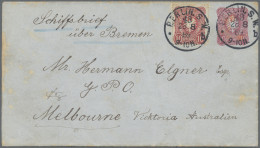 Schiffsbrief
über Bremen
BERLIN S.W.
BERLIN S.W.
Mr Hermann Elgner Esq.
G. P. O.
Melbourne Viktoria Australien